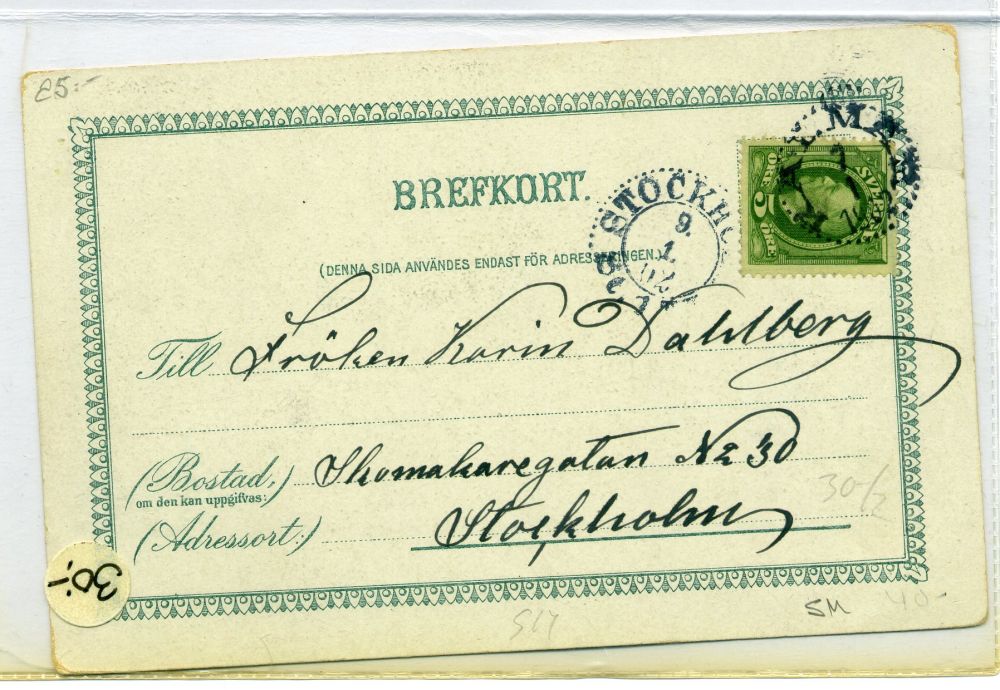 25:-
BREFKORT.
STOCKHO
9.
1.
02
5 ÖRE
(DENNA SIDA ANVÄNDES ENDAST FÖR ADRESSERINGEN.)
Till Fröken Karin Dahlberg
(Bostad,) Skomakaregatan No 30
om den kan uppgifvas:
(Adressort:) Stockholm
30-/2
30:-
SM 40-